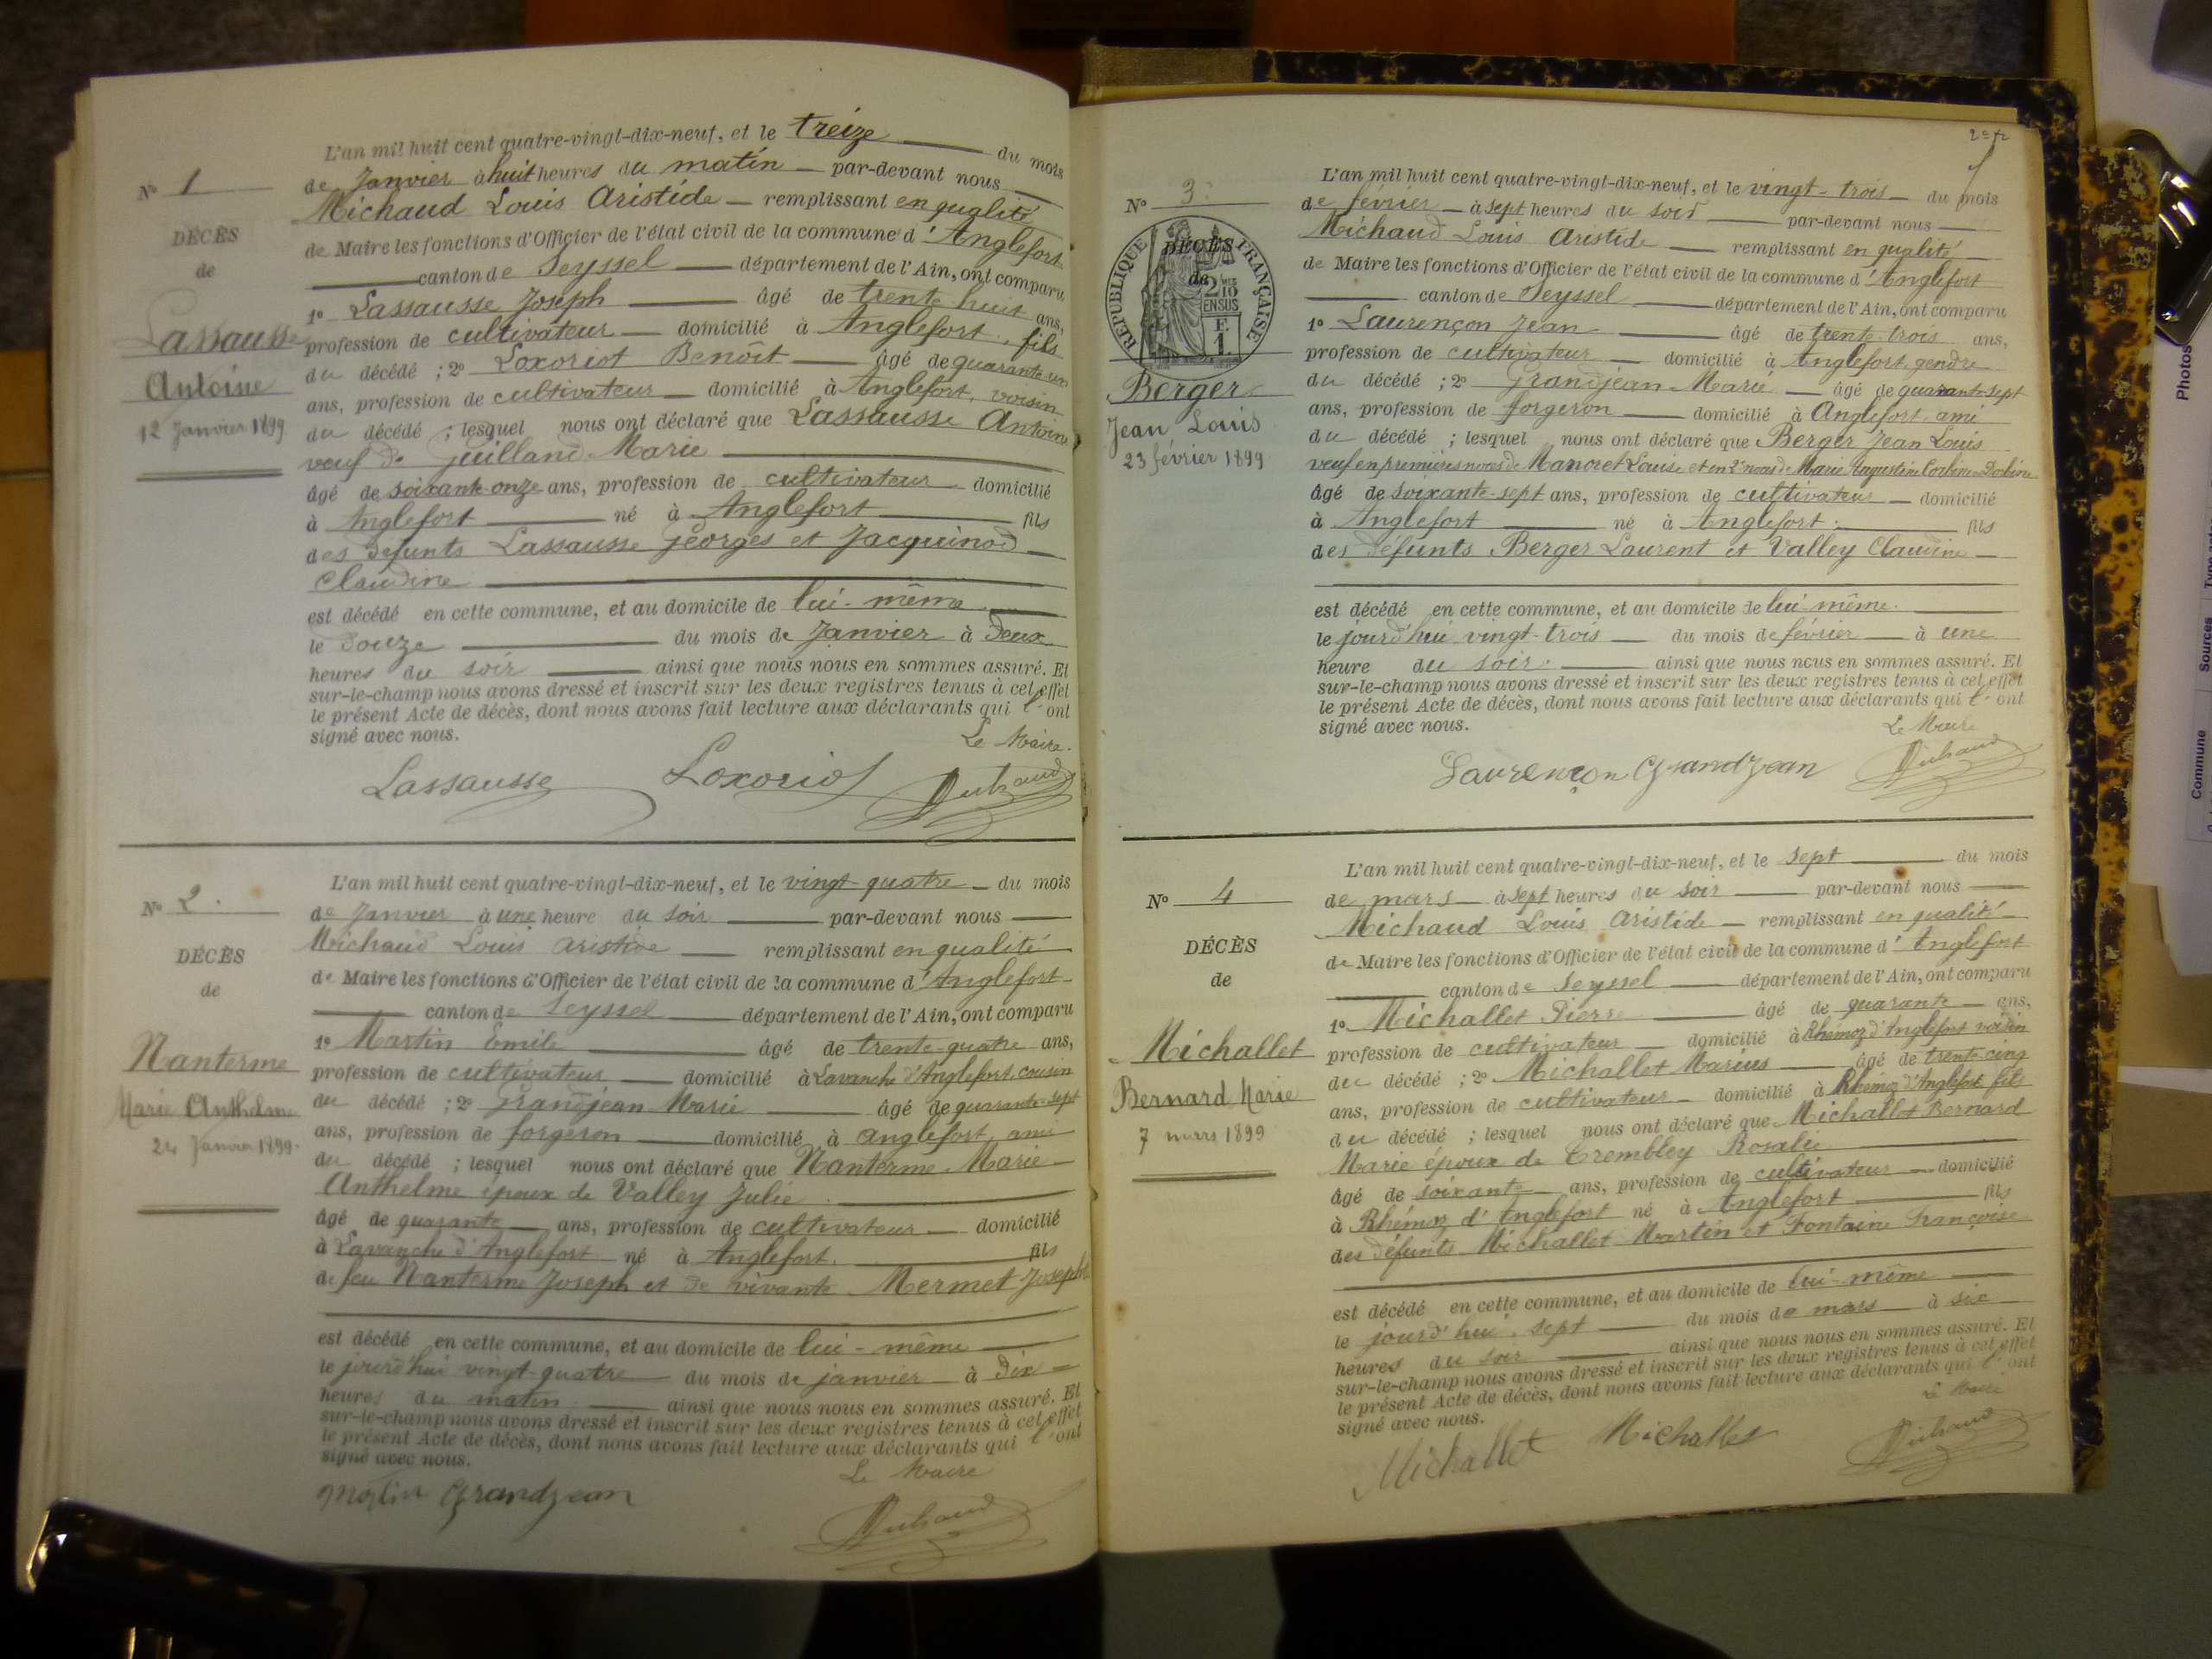 L'an mil huit cent quatre-vingt-dix-neuf, et le treize du mois
de Janvier à huit heures du matin par-devant nous
Michaud Louis Aristide remplissant en qualité
de Maire les fonctions d'Officier de l'état civil de la commune d'Anglefort
canton de Seyssel département de l'Ain, ont comparu
1º Lassausse Joseph âgé de trente huit ans,
profession de cultivateur domicilié à Anglefort, fils
du décédé ; 2º Loxoriot Benoît âgé de quarante-un
ans, profession de cultivateur domicilié à Anglefort, voisin
du décédé ; lesquel nous ont déclaré que Lassausse Antoine
veuf de Guilland Marie
âgé de soixante-onze ans, profession de cultivateur domicilié
à Anglefort né à Anglefort fils
des défunts Lassausse Georges et Jacquinod
Claudine
est décédé en cette commune, et au domicile de lui-même
le douze du mois de Janvier à deux
heures du soir ainsi que nous nous en sommes assuré. Et
sur-le-champ nous avons dressé et inscrit sur les deux registres tenus à cet effet
le présent Acte de décès, dont nous avons fait lecture aux déclarants qui l'ont
signé avec nous.
Le Maire.
Lassausse Loxoriot
Nº 1
DÉCÈS
de
Lassausse
Antoine
12 Janvier 1899
L'an mil huit cent quatre-vingt-dix-neuf, et le vingt-quatre du mois
de Janvier à une heure du soir par-devant nous
Michaud Louis Aristide remplissant en qualité
de Maire les fonctions d'Officier de l'état civil de la commune d'Anglefort
canton de Seyssel département de l'Ain, ont comparu
1º Martin Emile âgé de trente-quatre ans,
profession de cultivateur domicilié à Lavanche d'Anglefort, cousin
du décédé ; 2º Grandjean Marie âgé de quarante-sept
ans, profession de forgeron domicilié à Anglefort, ami
du décédé ; lesquel nous ont déclaré que Nanterme Marie
Anthelme époux de Valley Julie
âgé de quarante ans, profession de cultivateur domicilié
à Lavanche d'Anglefort né à Anglefort. fils
de feu Nanterme Joseph et de vivante Mermet Josephte
est décédé en cette commune, et au domicile de lui-même
le jourd'hui vingt-quatre du mois de janvier à dix
heures du matin ainsi que nous nous en sommes assuré. Et
sur-le-champ nous avons dressé et inscrit sur les deux registres tenus à cet effet
le présent Acte de décès, dont nous avons fait lecture aux déclarants qui l'ont
signé avec nous.
Le Maire
Martin Grandjean
Nº 2.
DÉCÈS
de
Nanterme
Marie Anthelme
24 Janvier 1899.
L'an mil huit cent quatre-vingt-dix-neuf, et le vingt-trois du mois
de février à sept heures du soir par-devant nous
Michaud Louis Aristide remplissant en qualité
de Maire les fonctions d'Officier de l'état civil de la commune d'Anglefort
canton de Seyssel département de l'Ain, ont comparu
1º Laurençon Jean âgé de trente-trois ans,
profession de cultivateur domicilié à Anglefort, gendre
du décédé ; 2º Grandjean Marie âgé de quarante-sept
ans, profession de forgeron domicilié à Anglefort, ami
du décédé ; lesquel nous ont déclaré que Berger Jean Louis
veuf en premières noces de Mancret Louise et en 2es noces de Marie Augustine
âgé de soixante-sept ans, profession de cultivateur domicilié
à Anglefort né à Anglefort. fils
des défunts Berger Laurent et Valley Claudine
est décédé en cette commune, et au domicile de lui-même.
le jourd'hui vingt-trois du mois de février à une
heure du soir. ainsi que nous nous en sommes assuré. Et
sur-le-champ nous avons dressé et inscrit sur les deux registres tenus à cet effet
le présent Acte de décès, dont nous avons fait lecture aux déclarants qui l'ont
signé avec nous.
Le Maire
Laurençon Grandjean
Nº 3.
DÉCÈS
de
RÉPUBLIQUE FRANÇAISE
2/10 EN SUS
F.
1.
Berger
Jean Louis
23 février 1899
L'an mil huit cent quatre-vingt-dix-neuf, et le sept du mois
de mars à sept heures du soir par-devant nous
Michaud Louis Aristide remplissant en qualité
de Maire les fonctions d'Officier de l'état civil de la commune d'Anglefort
canton de Seyssel département de l'Ain, ont comparu
1º Michallet Pierre âgé de quarante ans,
profession de cultivateur domicilié à Rhémoz d'Anglefort voisin
du décédé ; 2º Michallet Marius âgé de trente-cinq
ans, profession de cultivateur domicilié à Rhémoz d'Anglefort fils
du décédé ; lesquel nous ont déclaré que Michallet Bernard
Marie époux de Trembley Rosalie
âgé de soixante ans, profession de cultivateur domicilié
à Rhémoz d'Anglefort né à Anglefort fils
des défunts Michallet Martin et Fontaine Françoise
est décédé en cette commune, et au domicile de lui-même
le jourd'hui sept du mois de mars à six
heures du soir ainsi que nous nous en sommes assuré. Et
sur-le-champ nous avons dressé et inscrit sur les deux registres tenus à cet effet
le présent Acte de décès, dont nous avons fait lecture aux déclarants qui l'ont
signé avec nous.
Le Maire
Michallet Michallet
Nº 4
DÉCÈS
de
Michallet
Bernard Marie
7 mars 1899
Photos
Sources
Commune